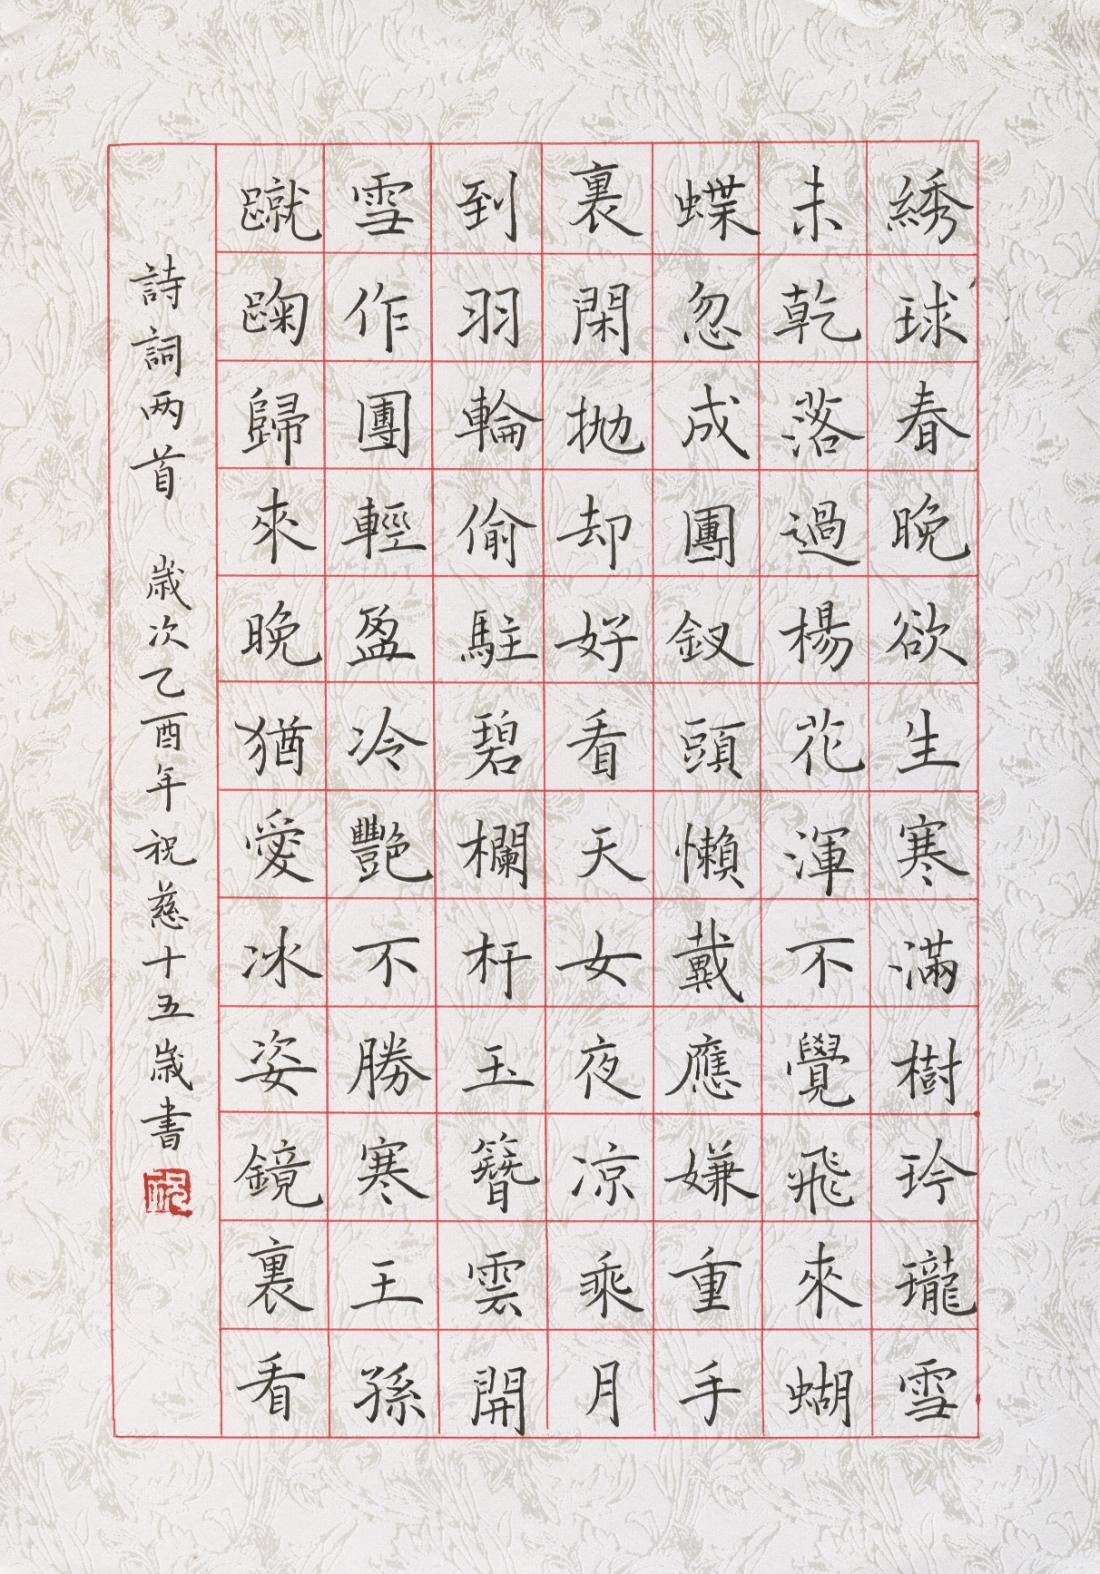 綉球春晚欲生寒滿樹玲瓏雪
未乾落過楊花渾不覺飛來蝴
蝶忽成團釵頭懶戴應嫌重手
裏閑抛却好看天女夜凉乘月
到羽輪偷駐碧欄杆玉簪雲開
雪作團輕盈冷艷不勝寒王孫
蹴踘歸來晚猶愛冰姿鏡裏看
詩詞两首 歲次乙酉年祝慈十五歲書
祝